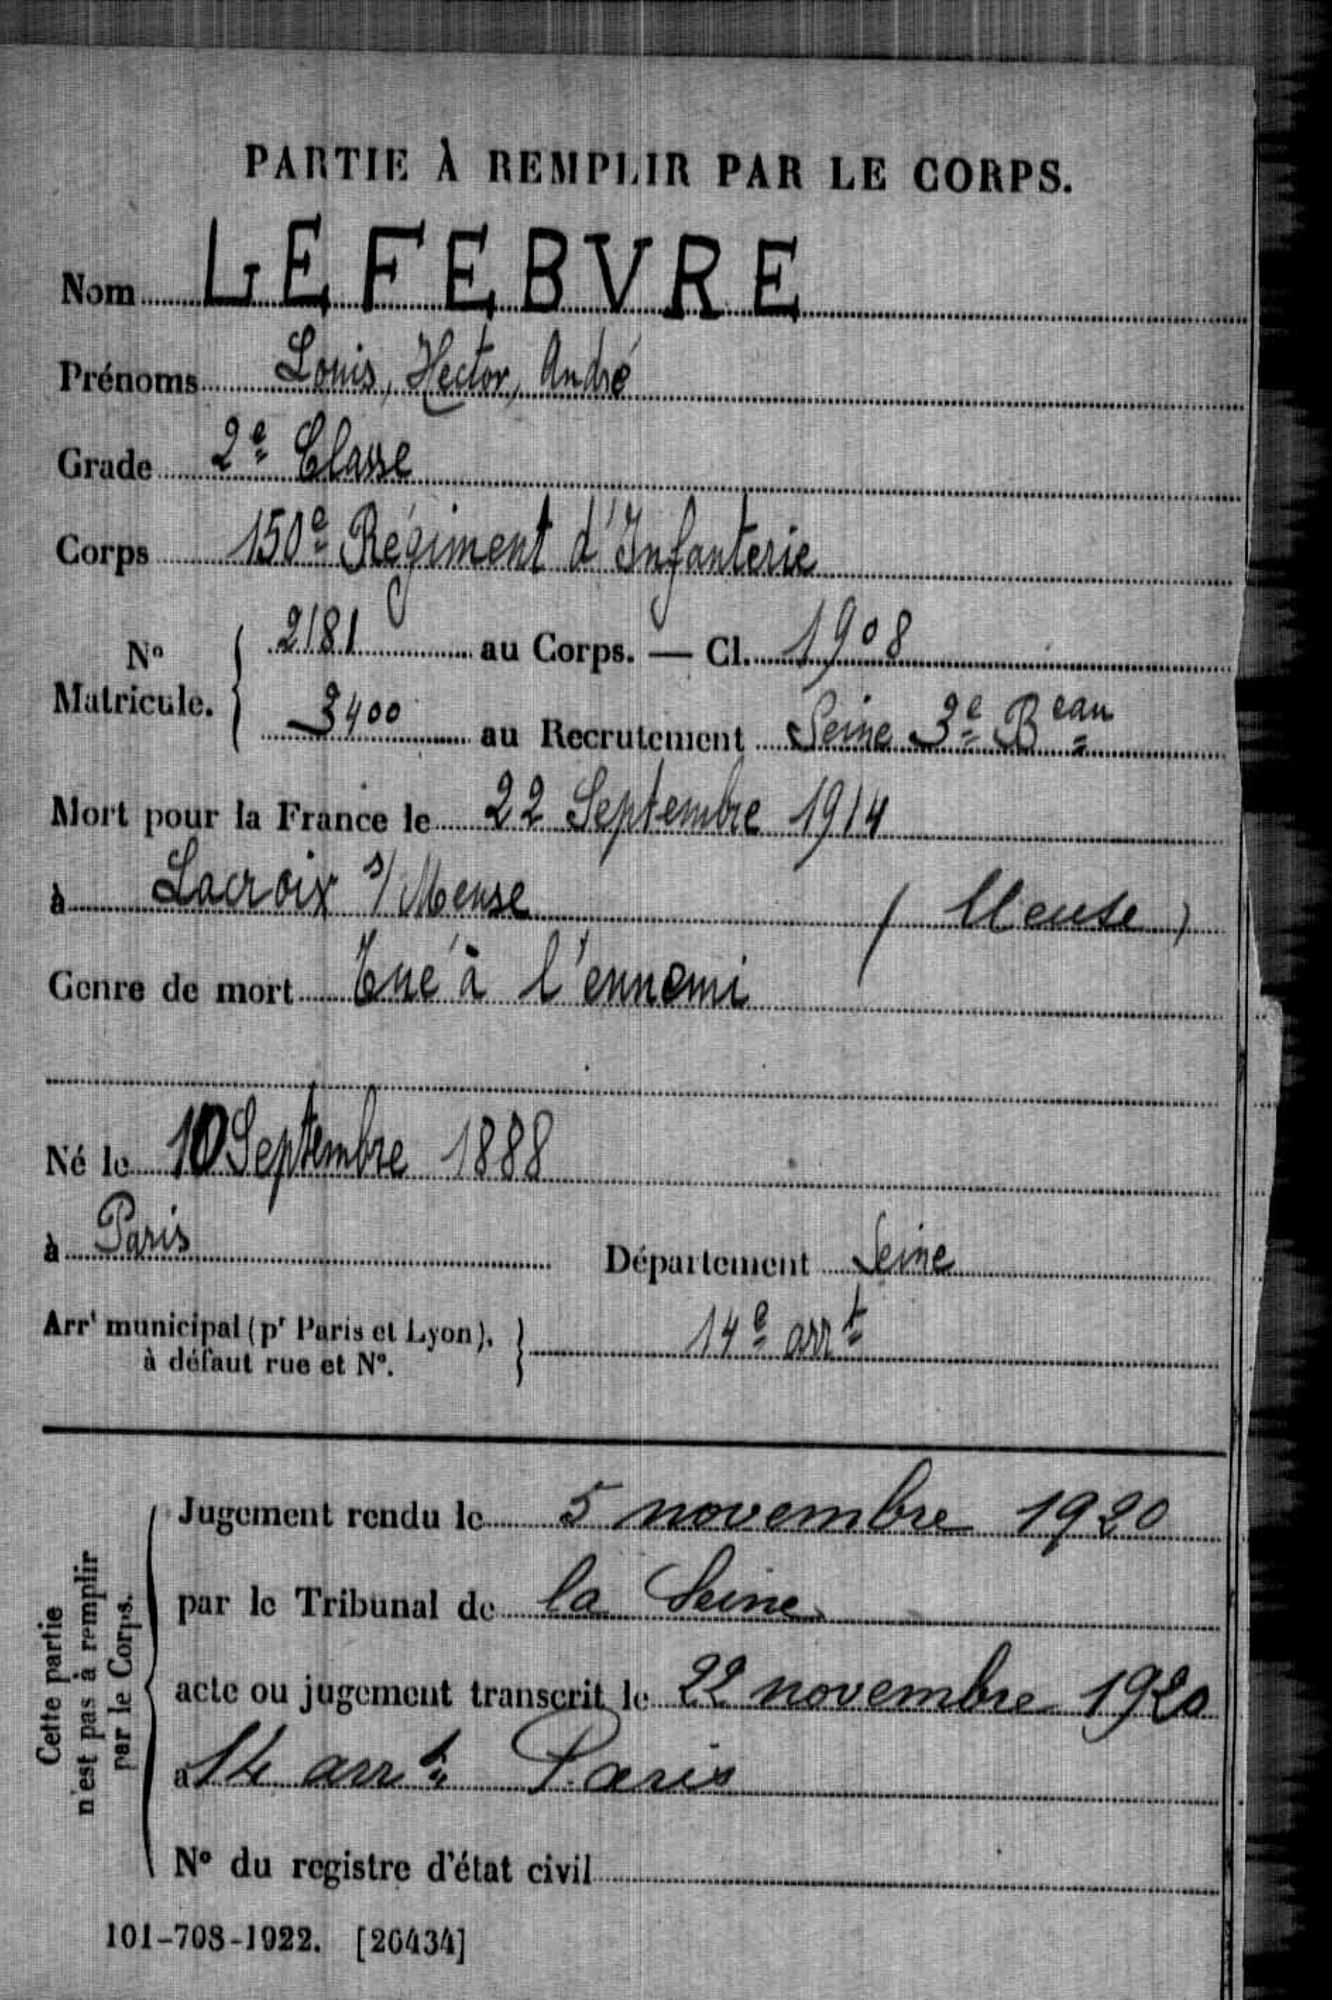 PARTIE À REMPLIR PAR LE CORPS.
Nom LEFEBVRE
Prénoms Louis, Hector, André
Grade 2e Classe
Corps 150e Régiment d'Infanterie
No Matricule. { 2181 au Corps. — Cl. 1908
3400 au Recrutement Seine 3e Beau
Mort pour la France le 22 Septembre 1914
à Lacroix s/Meuse ( Meuse )
Genre de mort Tué à l'ennemi
Né le 10 Septembre 1888
à Paris Département Seine
Arrt municipal (pr Paris et Lyon), } 14e arrt
à défaut rue et No.
Cette partie
n'est pas à remplir
par le Corps.
Jugement rendu le 5 novembre 1920
par le Tribunal de la Seine
acte ou jugement transcrit le 22 novembre 1920
a 14 arrt Paris
No du registre d'état civil
101-708-1922. [26434]